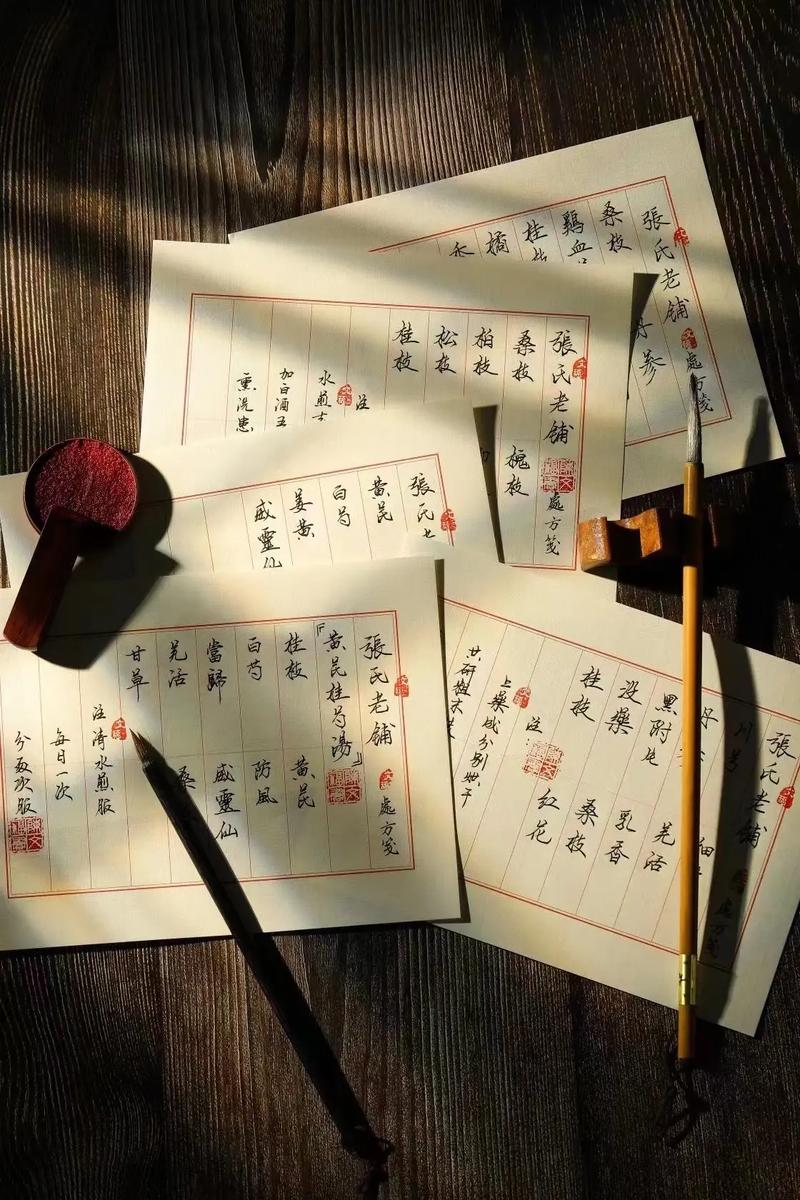 張氏老舖 處方箋
桑枝
鷄血
桂枝
橘
丹參
張氏老舖 處方箋
桑枝 槐枝
柏枝
松枝
桂枝
注
水煎
加白酒
熏洗患
張氏
黄芪
白芍
姜黄
威靈仙
張氏老舖 處方箋
「黄芪桂芍湯」
桂枝 黄芪
白芍 防風
當歸 威靈仙
羌活 桑
甘草
注清水煎服
每日一次
分两次服
張氏老舖 處方箋
川芎
丹 細
黑附 羌活
没藥 乳香
桂枝 桑枝
紅花
注
上藥成分别烘干
共研粗末